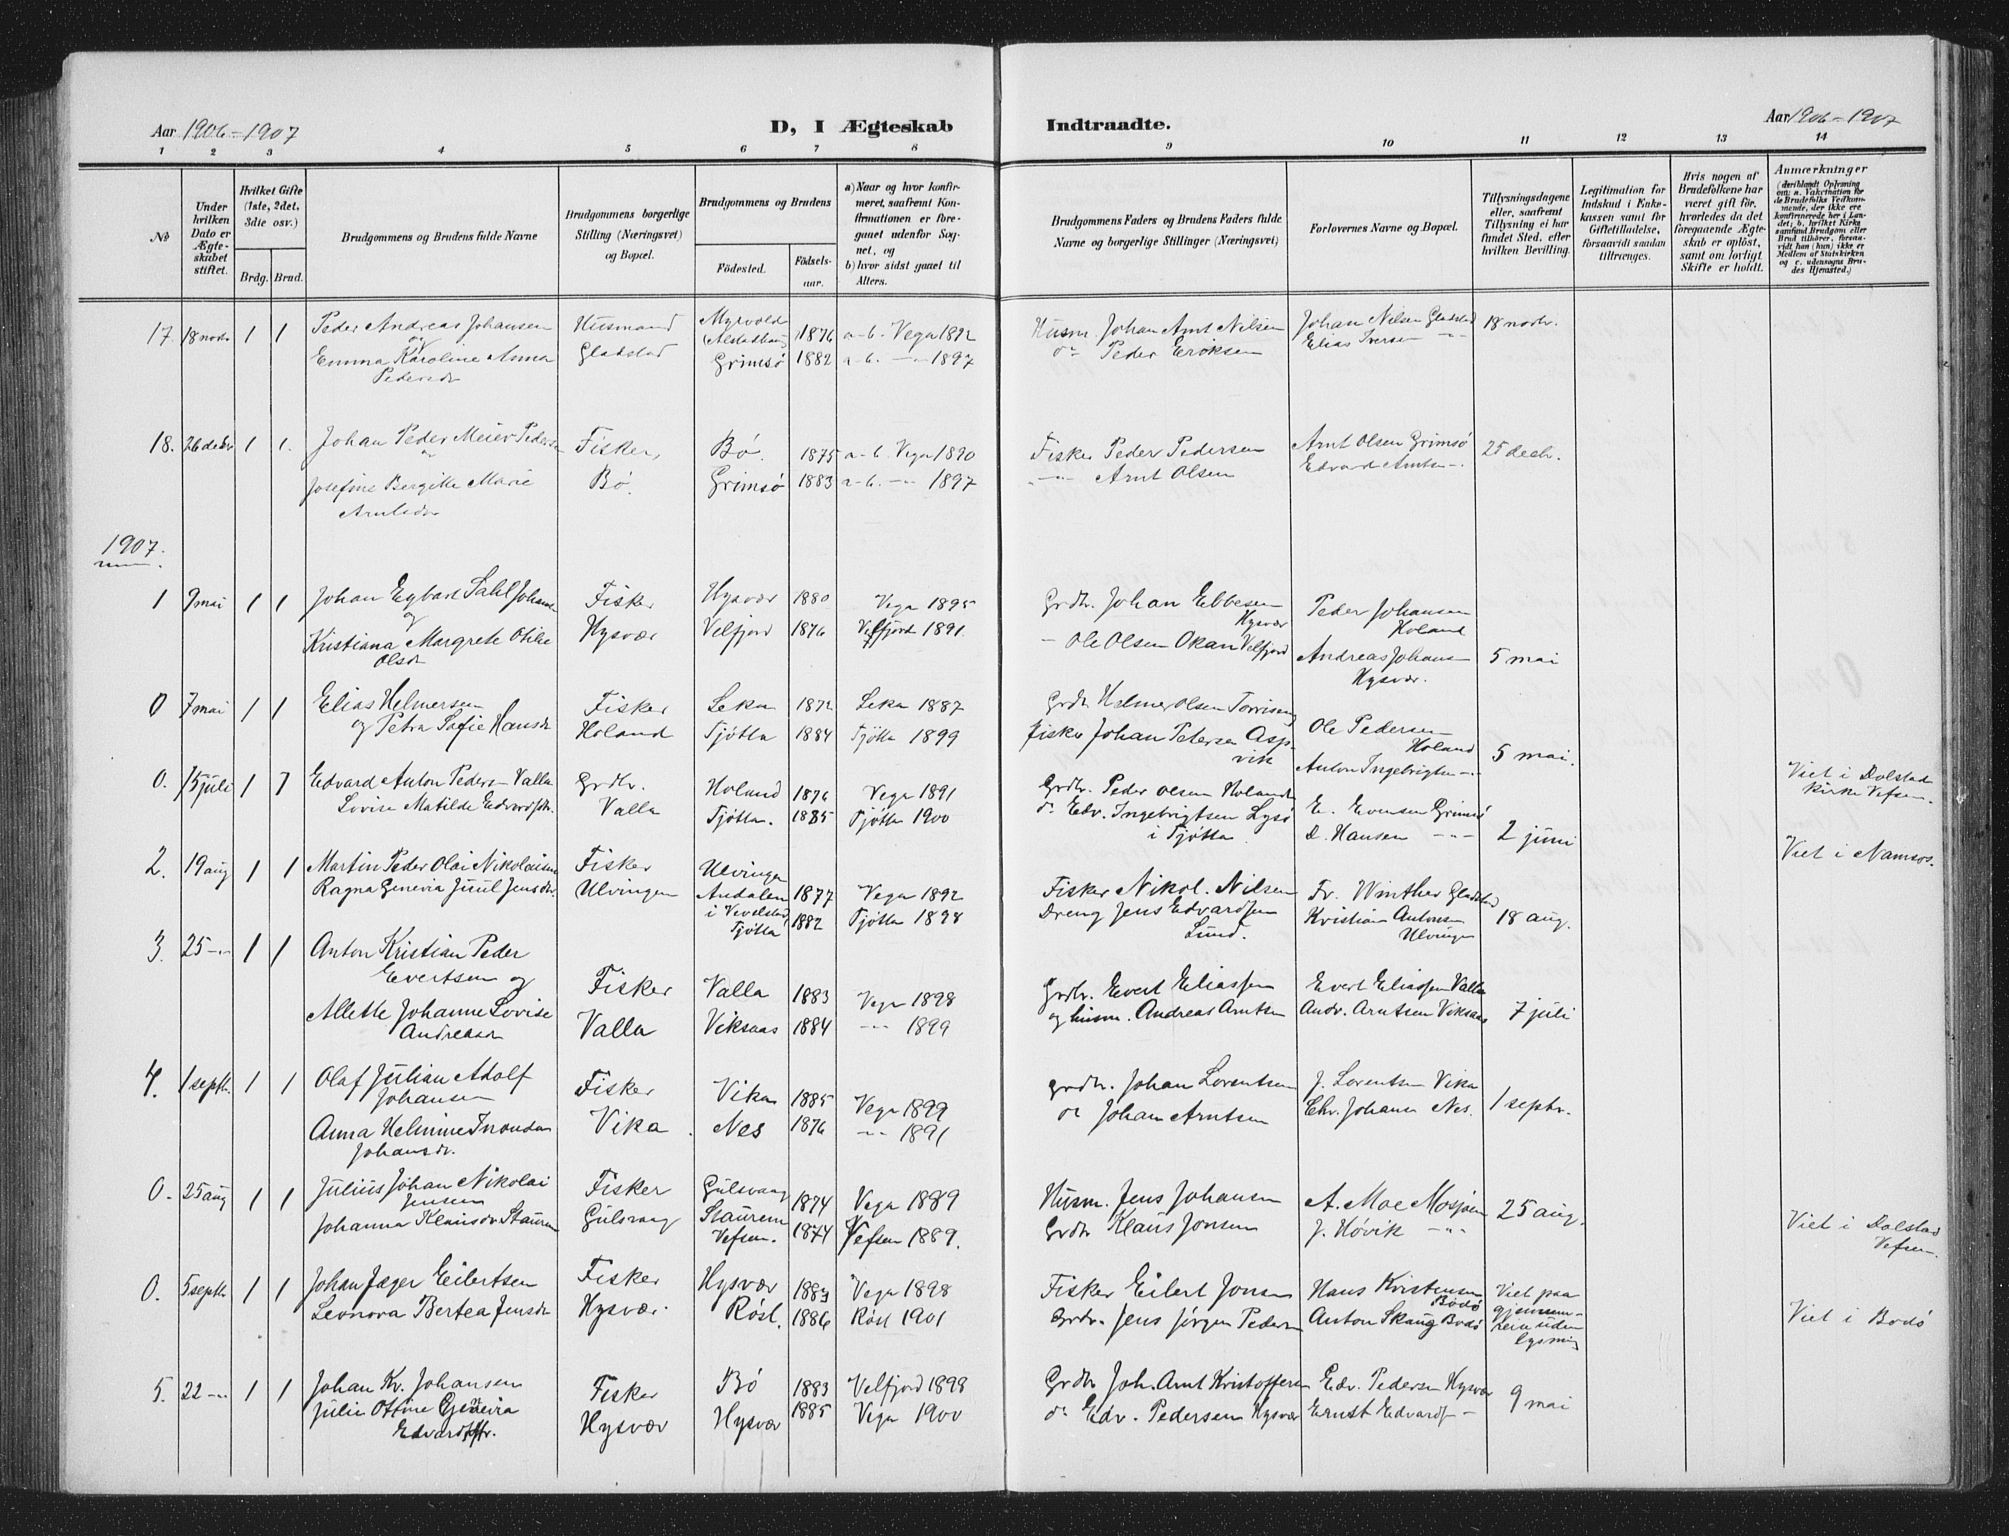 Aar 1906-1907
D, I Ægteskab Indtraadte.
Aar 1906-1907
1 2 3 4 5 6 7 8 9 10 11 12 13 14
No
Under hvilken Dato er Ægteskabet stiftet.
Hvilket Gifte (1ste, 2det, 3die osv.)
Brdg. Brud.
Brudgommens og Brudens fulde Navne
Brudgommens borgerlige Stilling (Næringsvei) og Bopæl.
Brudgommens og Brudens
Födested.
Födselsaar.
a) Naar og hvor konfirmeret, saafremt Konfirmationen er foregaaet udenfor Sognet, og
b) hvor sidst gaaet til Alters.
Brudgommens Faders og Brudens Faders fulde Navne og borgerlige Stillinger (Næringsvei)
Forlovernes Navne og Bopæl.
Tillysningsdagene eller, saafremt Tillysning ei har fundet Sted, efter hvilken Bevilling.
Legitimation for Indskud i Enkekassen samt for Giftetilladelse, forsaavidt saadan tiltrænges.
Hvis nogen af Brudefolkene har været gift för, hvorledes da det foregaaende Ægteskab er oplöst, samt om lovligt Skifte er holdt.
Anmærkninger
(deriblandt Oplysning om: a. Vakcination for de Brudefolks Vedkommende, der ikke ere konfirmerede her i Landet; b. hvilket Kirkesamfund Brudgom eller Brud tilhörer, forsaavidt han (hun) ikke er Medlem af Statskirken og c. udensogns Brudes Hjemsted.)
17. 18 novbr 1 1 Peder Andreas Johansen Husmand Myrvold 1876 a-b. Vega 1892 Husm. Johan Arnt Nilsen Johan Nilsen Gladstad 18 novbr.
og (Alstadhaug)
Emma Karoline Anna Gladstad Grimsö 1882 a-b. -"- 1897 do Peder Eriksen Elias Iversen -"-
Pedersdr
18. 26 decbr 1 1. Johan Peder Meier Pedersen Fisker, Bö. 1875 a-b. Vega 1890 Fisker Peder Pedersen Arnt Olsen Grimsö 25 decbr.
Josefine Bergitte Marie Bö. Grimsö 1883 a-b. -"- 1897 -"- Arnt Olsen Edvard Arntsen -
Arntsdr
1907.
1 9 mai 1 1 Johan Egbart Sahl Johans Fisker Hysvær 1880 Vega 1895 Grdbr. Johan Ebbesen Hysvær Peder Johansen Holand
og
Kristiana Margrete Otilie Hysvær Velfjord 1876 Velfjord 1891. - Ole Olsen Okan Velfjord Andreas Johans Hysvær. 5 mai
Olsdr
0 7 mai 1 1 Elias Helmersen Fisker Leka 1872 Leka 1887 Grdbr Helmer Olsen
og Petra Sofie Hansdr Holand Tjötta 1884 Tjötta 1899 fisker Johan Petersen Aspvik Ole Pedersen Holand 5 mai.
Anton Ingebrigtsen -"-
0. 15 juli 1 1 Edvard Anton Peders- Valla Grdbr. Holand 1876 Vega 1891 Grdbr. Peder Olsen Holand Viet i Dolstad kirke Vefsen.
Lovise Matilde Edvardsdtr. Valla Tjötta. 1885 Tjötta 1900 do Edv. Ingebrigtsen Lysö i Tjötta E. Evensen Grimsö 2 juni
D. Hansen -"-
2. 19 aug 1 1 Martin Peder Olai Nikolaisen Fisker Ulvingen Viet i Namsos.
Ragna Genevia Juul Jensdr. Ulvingen Andalen 1877 Vega 1892 Fisker Nikol. Nilsen Fr. Winther Gladstad
i Vevelstad Tjötta 1882 Tjötta 1898 Dreng Jens Edvardsen Lund. Kristian Antonsen Ulvingen 18 aug.
3. 25 -"- 1 1 Anton Kristian Peder
Evertsen og Fisker Valla 1883 Vega 1898 Grdbr. Evert Eliassen Evert Eliassen Valla
Allette Johanne Lovise Valla Viksaas 1884 -"- 1899 og husm. Andreas Arntsen Andr. Arntsen Viksaas 7 juli
Andreasdr
4. 1 septbr. 1 1 Olaf Julian Adolf Fisker Vika 1885 Vega 1899 grdbr. Johan Lorentsen J. Lorentsen Vika
Johansen
Anna Helmine Vika. Nes 1876 -"- 1891 do Johan Arntsen Chr. Johans Nes. 1 septbr.
Johansdr.
0. 25 aug 1 1 Julius Johan Nikolai Fisker Gulsvaag 1874 Vega 1889 Husm. Jens Johansen A. Moe Mosjöen 25 aug.
Jensen
Johanna Klausdr Stauren Gulsvaag Staurem Vefsen. 1874 Vefsen 1889. Grdbr Klaus Jonsen J. Hövik -"- Viet i Dolstad Vefsen.
0. 5 septbr 1 1 Johan Jæger Eilertsen Fisker Hysvær 1883 Vega 1898 Fisker Eilert Jonsen Hans Kristensen Bodö Viet paa
Leonora Bertea Jensdr Hysvær. Röst. 1886 Röst 1901 Grdbr. Jens Jörgen Peders Anton Skaug Bodö uden lysning Viet i Bodö
5. 22 -"- 1 1 Johan Kr. Johansen Fisker Bö 1883 Velfjord 1898 Grdbr Joh. Arnt Kristoffersen Edv. Pedersen Hysvær 9 mai
Julie Ottine Genevia Hysvær Hysvær 1885 Vega 1900 do Edv. Pedersen Hysvær Ernst Edvards -
Edvardsdtr.